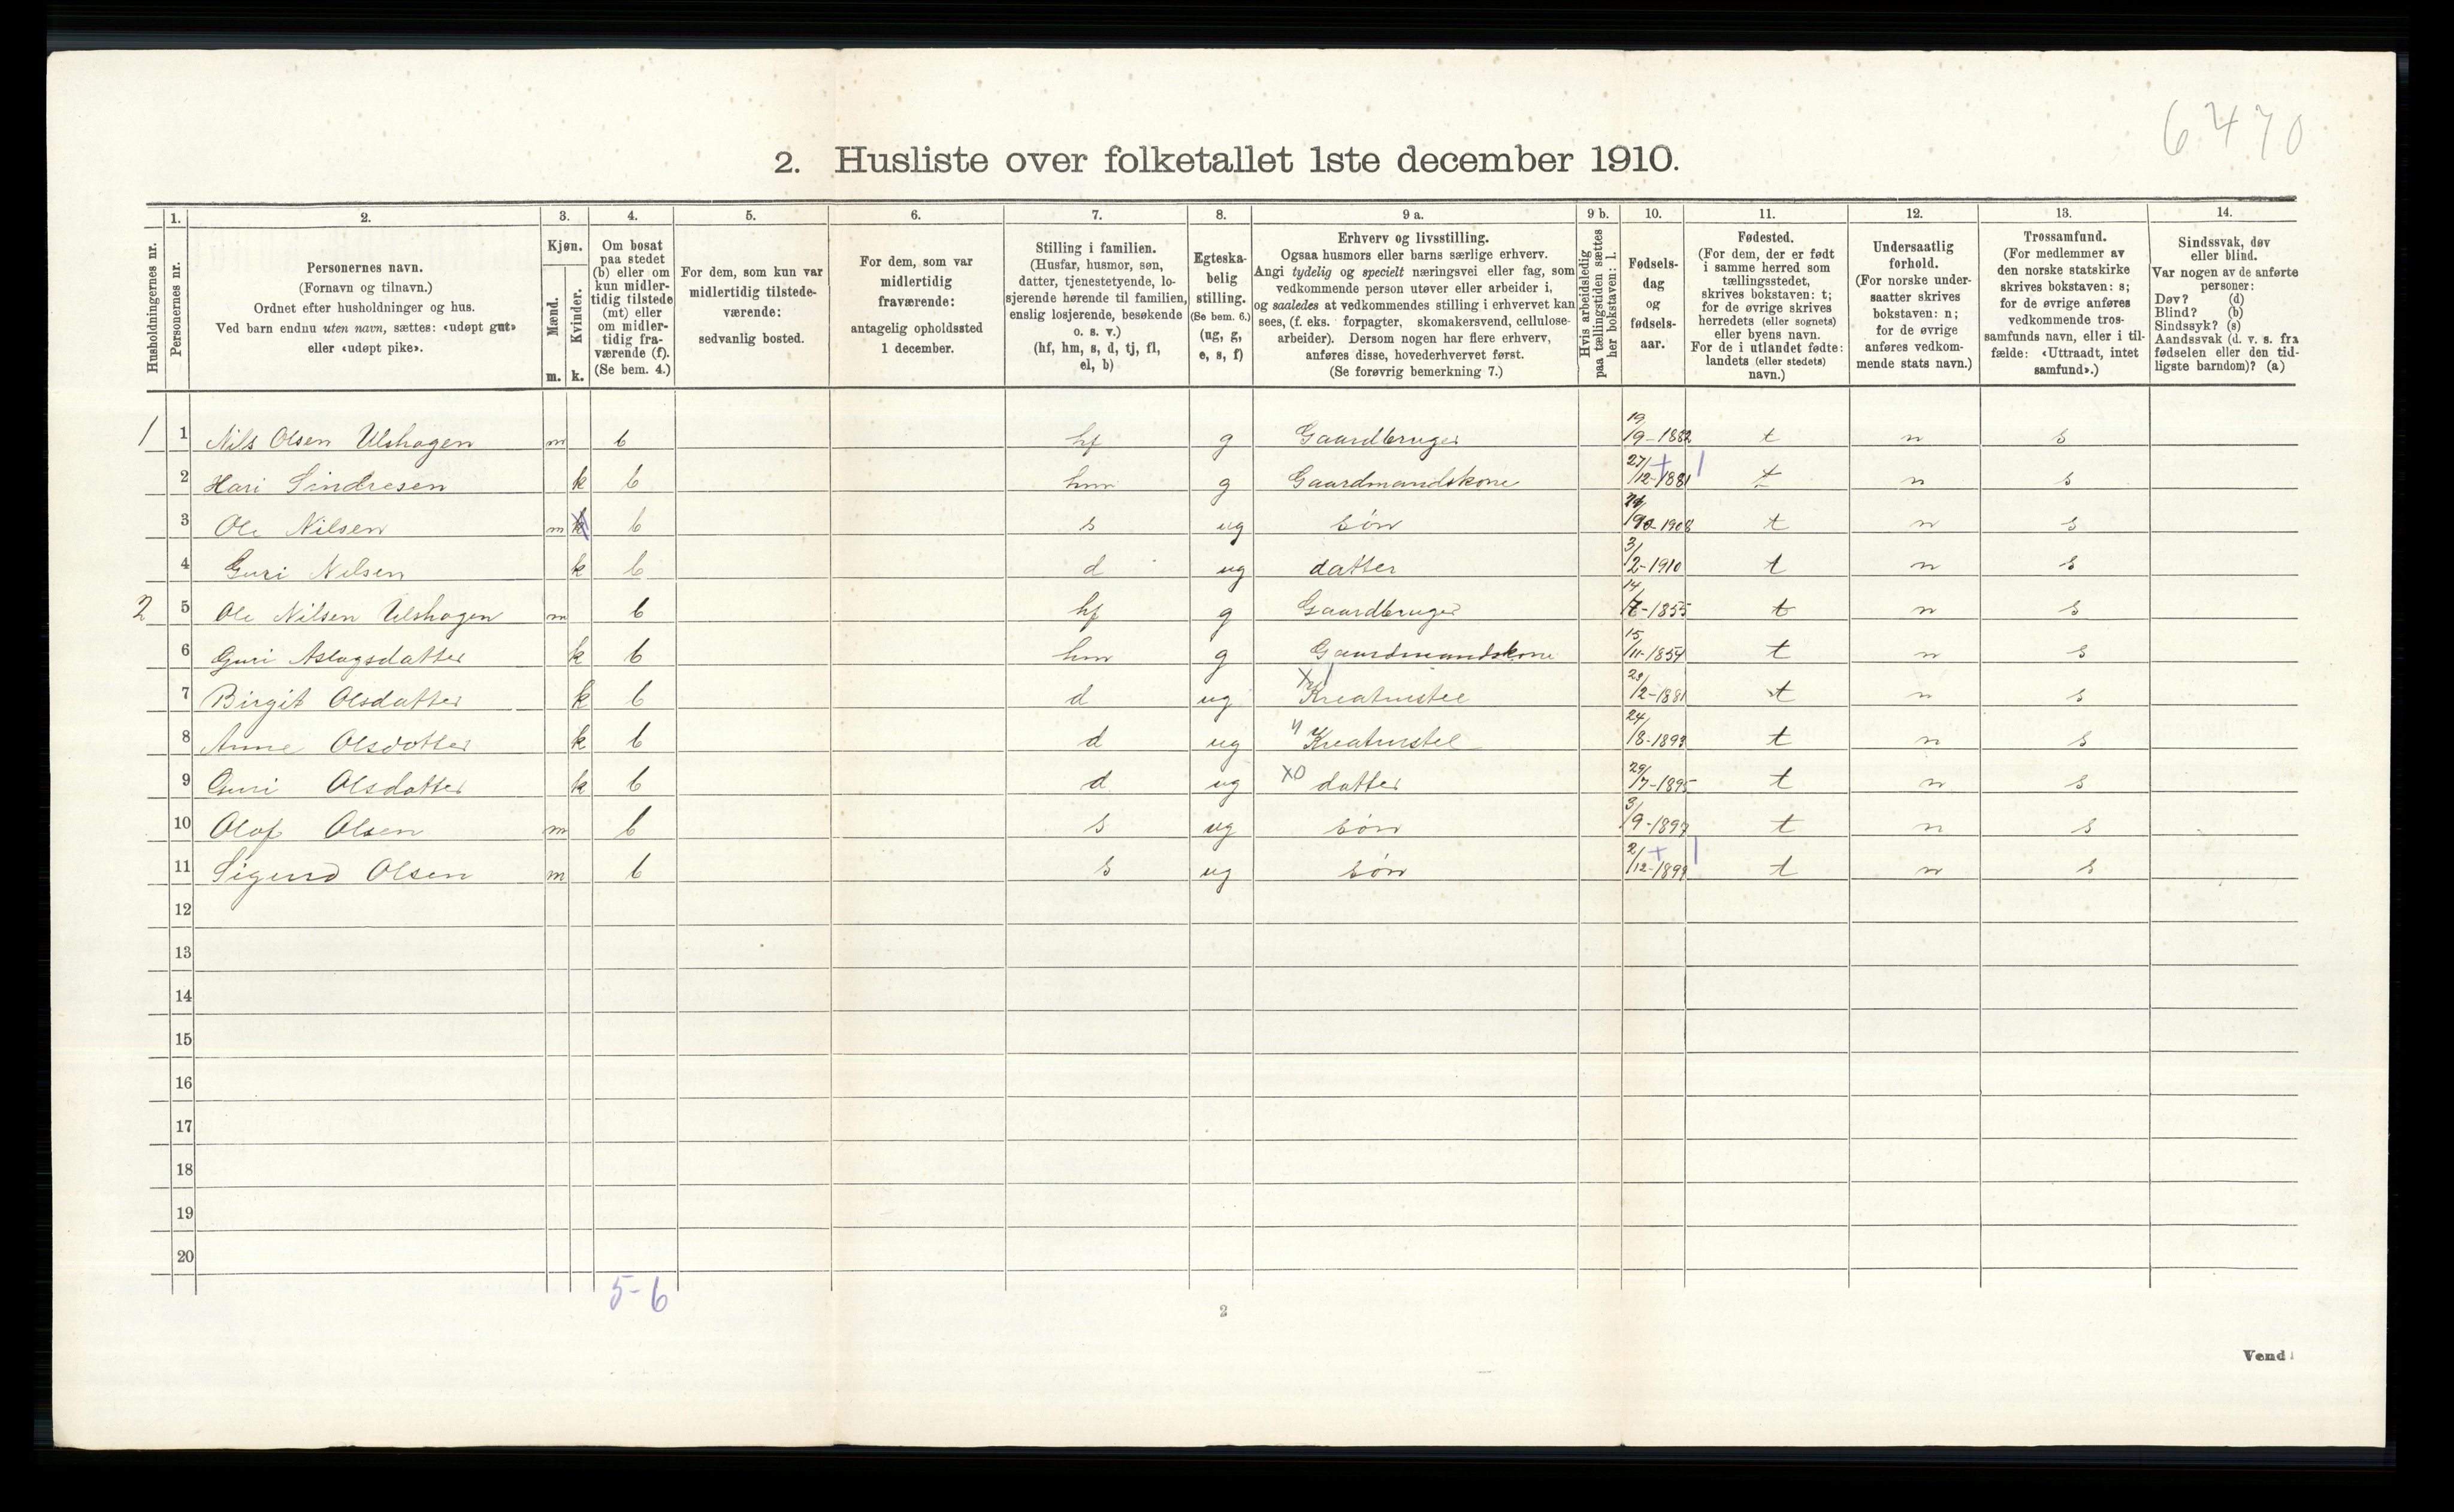 6470
2. Husliste over folketallet 1ste december 1910.
Husholdningernes nr.
1. Personernes nr.
2. Personernes navn. (Fornavn og tilnavn.) Ordnet efter husholdninger og hus. Ved barn endnu uten navn, sættes: «udøpt gut» eller «udøpt pike».
3. Kjøn. Mænd. m. Kvinder. k.
4. Om bosat paa stedet (b) eller om kun midler-tidig tilstede (mt) eller om midler-tidig fra-værende (f). (Se bem. 4.)
5. For dem, som kun var midlertidig tilstede-værende: sedvanlig bosted.
6. For dem, som var midlertidig fraværende: antagelig opholdssted 1 december.
7. Stilling i familien. (Husfar, husmor, søn, datter, tjenestetyende, lo-sjerende hørende til familien, enslig losjerende, besøkende o. s. v.) (hf, hm, s, d, tj, fl, el, b)
8. Egteska-belig stilling. (Se bem. 6.) (ug, g, e, s, f)
9 a. Erhverv og livsstilling. Ogsaa husmors eller barns særlige erhverv. Angi tydelig og specielt næringsvei eller fag, som vedkommende person utøver eller arbeider i, og saaledes at vedkommendes stilling i erhvervet kan sees, (f. eks. forpagter, skomakersvend, cellulose-arbeider). Dersom nogen har flere erhverv, anføres disse, hovederhvervet først. (Se forøvrig bemerkning 7.)
9 b. Hvis arbeidsledig paa tællingstiden sættes her bokstaven: l.
10. Fødsels-dag og fødsels-aar.
11. Fødested. (For dem, der er født i samme herred som tællingsstedet, skrives bokstaven: t; for de øvrige skrives herredets (eller sognets) eller byens navn. For de i utlandet fødte: landets (eller stedets) navn.)
12. Undersaatlig forhold. (For norske under-saatter skrives bokstaven: n; for de øvrige anføres vedkom-mende stats navn.)
13. Trossamfund. (For medlemmer av den norske statskirke skrives bokstaven: s; for de øvrige anføres vedkommende tros-samfunds navn, eller i til-fælde: «Uttraadt, intet samfund».)
14. Sindssvak, døv eller blind. Var nogen av de anførte personer: Døv? (d) Blind? (b) Sindssyk? (s) Aandssvak (d. v. s. fra fødselen eller den tid-ligste barndom)? (a)
1 1 Nils Olsen Ulshagen m b hf g Gaardbruger 19/9-1882 t n s
2 Hari Sindresen k b hm g Gaardmandskone 27/12-1881 t n s
3 Ole Nilsen m b s ug søn 1908 t n s
4 Guri Nilsen k b d ug datter 3/2-1910 t n s
2 5 Ole Nilsen Ulshagen m b hf g Gaardbruger 14/7-1855 t n s
6 Guri Aslagsdatter k b hm g Gaardmandskone 15/11-1854 t n s
7 Birgit Olsdatter k b d ug Kreaturstel 23/2-1881 t n s
8 Anne Olsdatter k b d ug Kreaturstel 24/8-1893 t n s
9 Guri Olsdatter k b d ug XO datter 29/7-1895 t n s
10 Olaf Olsen m b s ug søn 3/9-1897 t n s
11 Sigurd Olsen m b s ug søn 2/12-1899 t n s
12
13
14
15
16
17
18
19
20
5-6
2
Vend